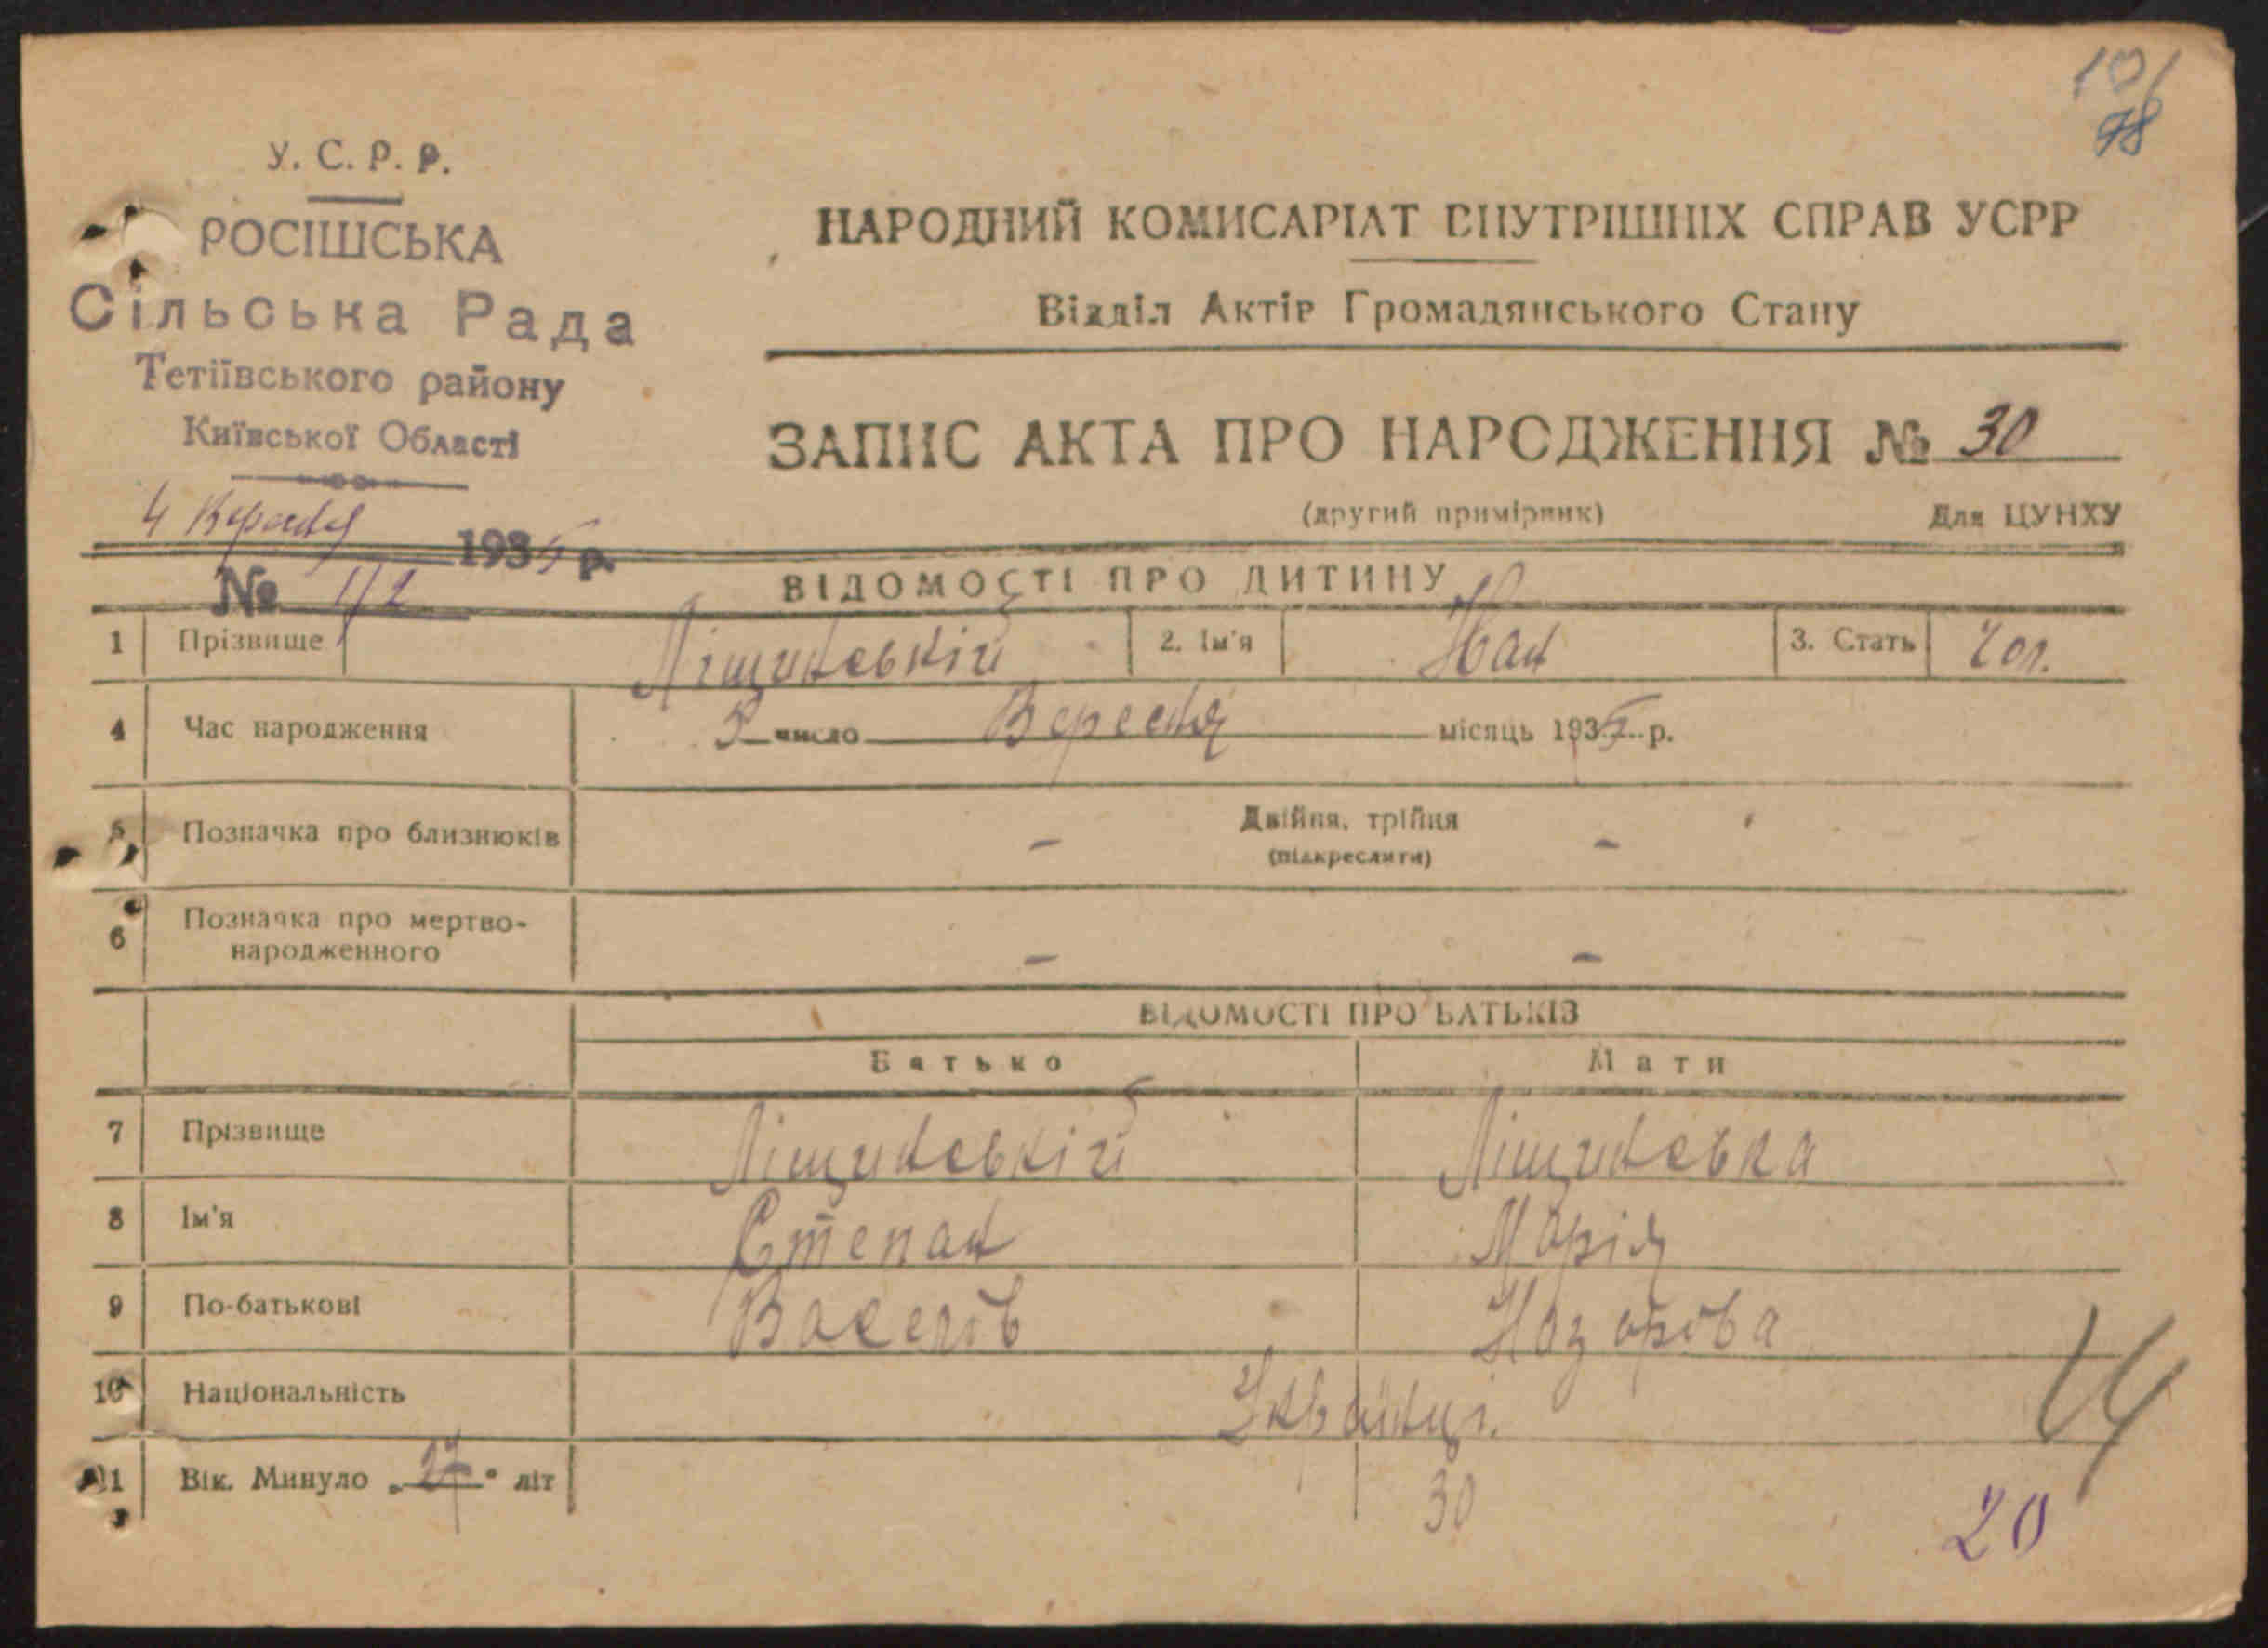 101
78
У. С. Р. Р.
РОСІШСЬКА
Сільська Рада
Тетіївського району
Київської Області
4 Вересня 1935 р.
№ 1/2
НАРОДНИЙ КОМИСАРІАТ ВНУТРІШНІХ СПРАВ УСРР
Відділ Актів Громадянського Стану
ЗАПИС АКТА ПРО НАРОДЖЕННЯ № 30
(другий примірник) Для ЦУНХУ
ВІДОМОСТІ ПРО ДИТИНУ
1 Прізвище Ліщинський 2. Ім'я Іван 3. Стать Чол.
4 Час народження 3 число Вересня місяць 1935 р.
5 Позначка про близнюків – Двійня, трійня –
(підкреслити)
6 Позначка про мертво-
народженного – –
ВІДОМОСТІ ПРО БАТЬКІВ
Батько Мати
7 Прізвище Ліщинській Ліщинська
8 Ім'я Степан Марія
9 По-батькові Васелів Назарова
10 Національність Українці.
11 Вік. Минуло "27" літ 30
14
20